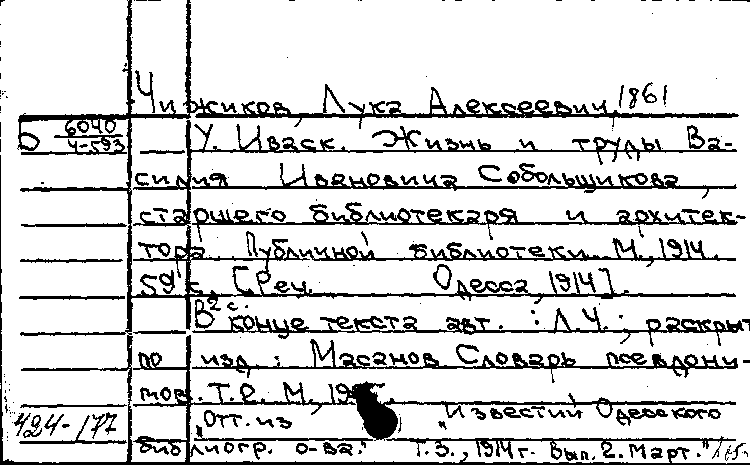 Чижиков, Лука Алексеевич, 1861
Б 6040/4-593 У. Иваск. Жизнь и труды Ва-
силия Ивановича Собольщикова,
старшего библиотекаря и архитек-
тора Публичной библиотеки. М., 1914.
59 с. [Рец. Одесса, 1914].
2 с.
В конце текста авт.: Л.Ч.; раскрыт
по изд.: Масанов. Словарь псевдони-
мов. Т.2. М.,
424-177 "Отт. из "Известий Одесского
библиогр. о-ва." Т.3., 1914 г. Вып. 2. Март."